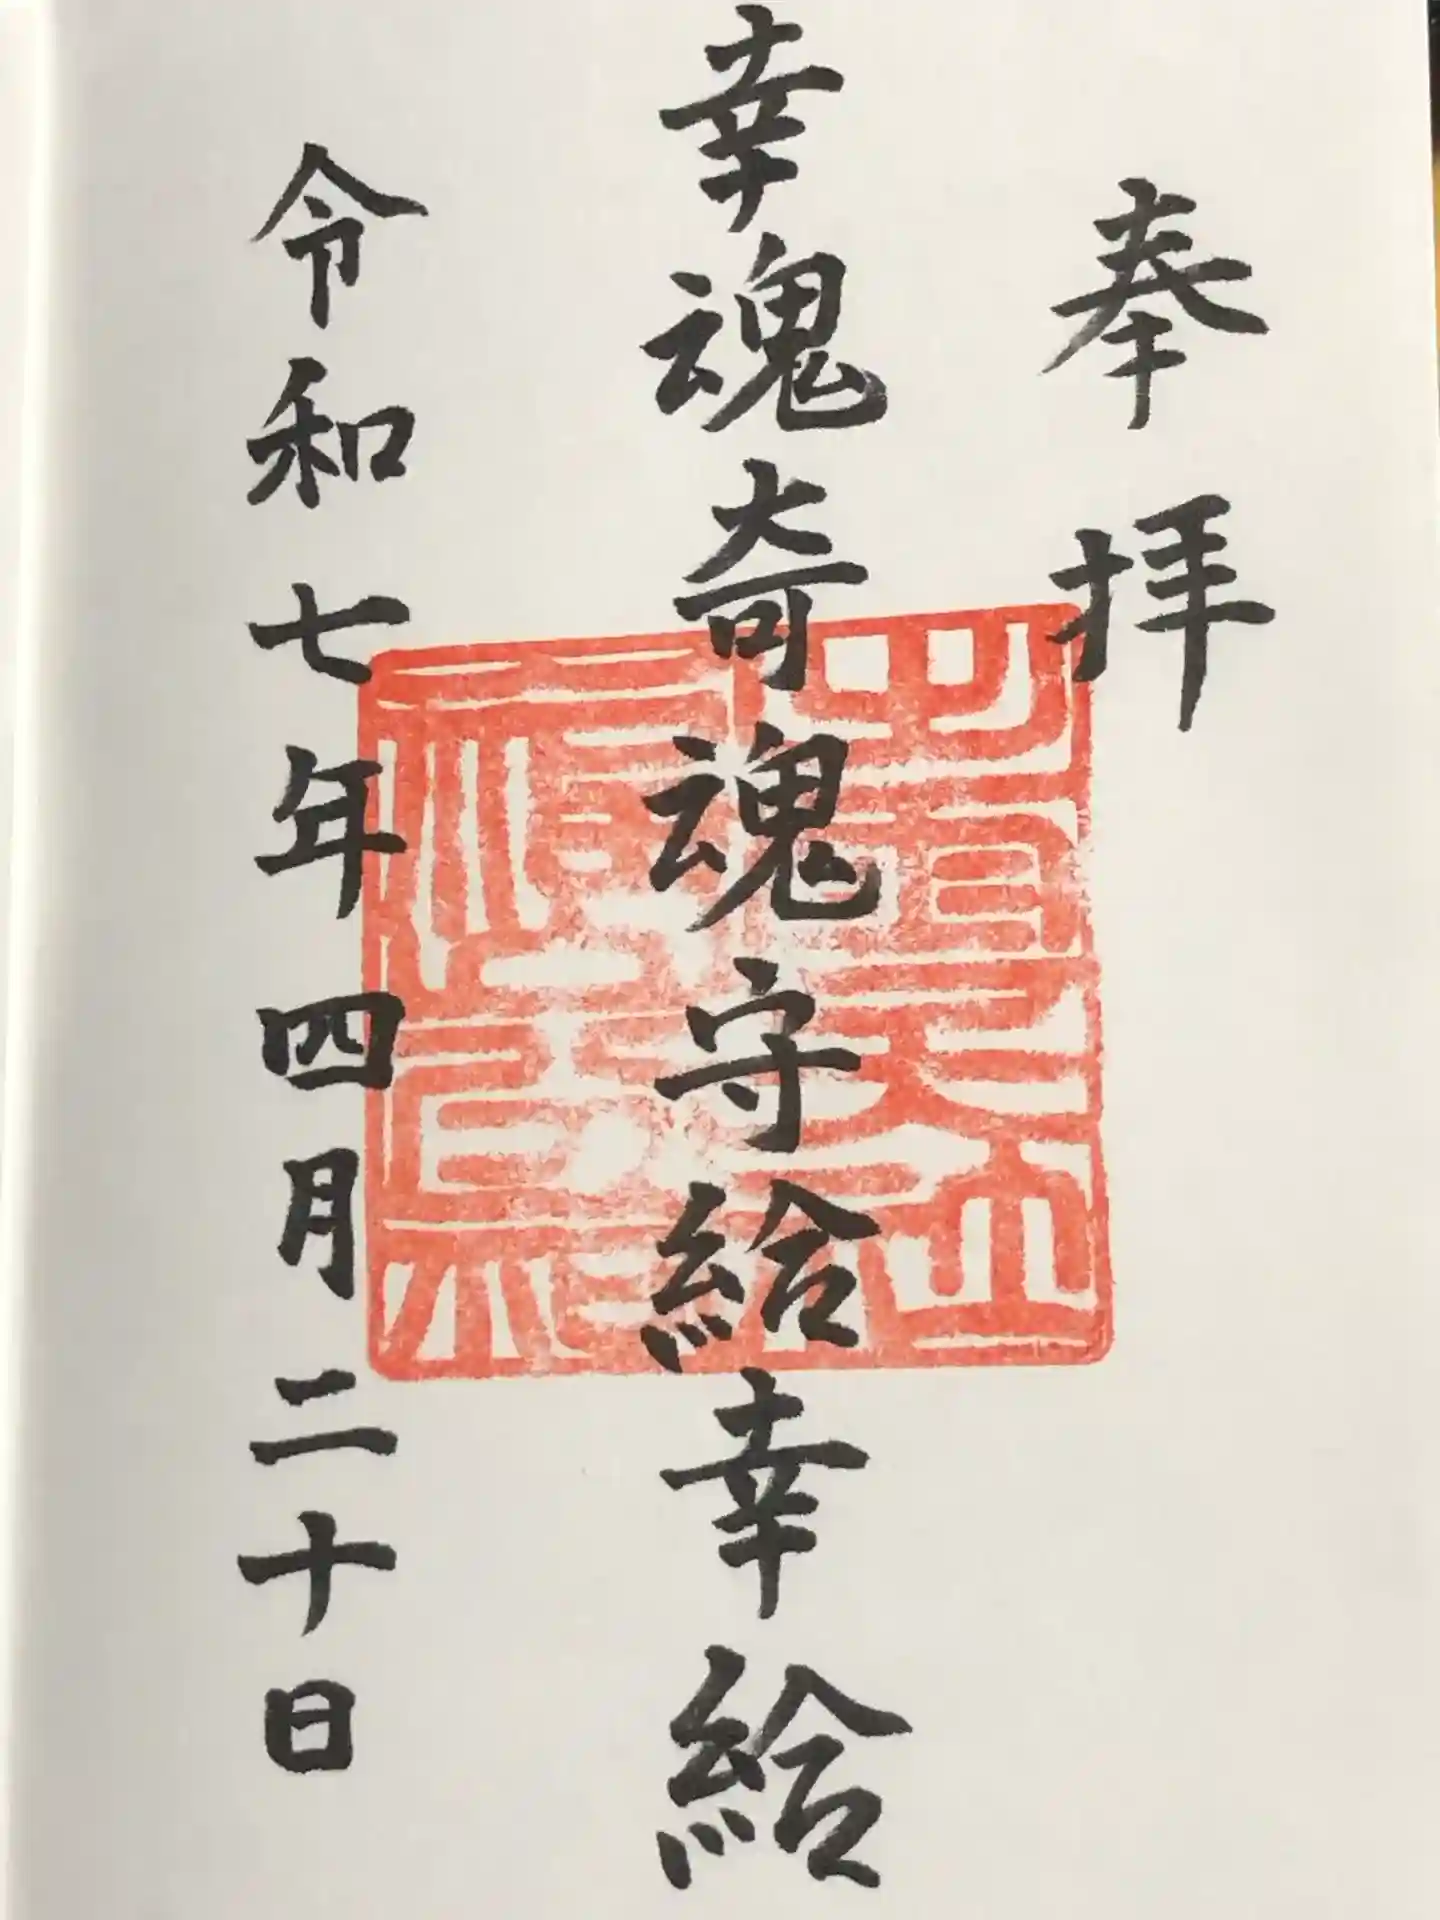 奉拝
幸魂奇魂守給幸給
令和七年四月二十日